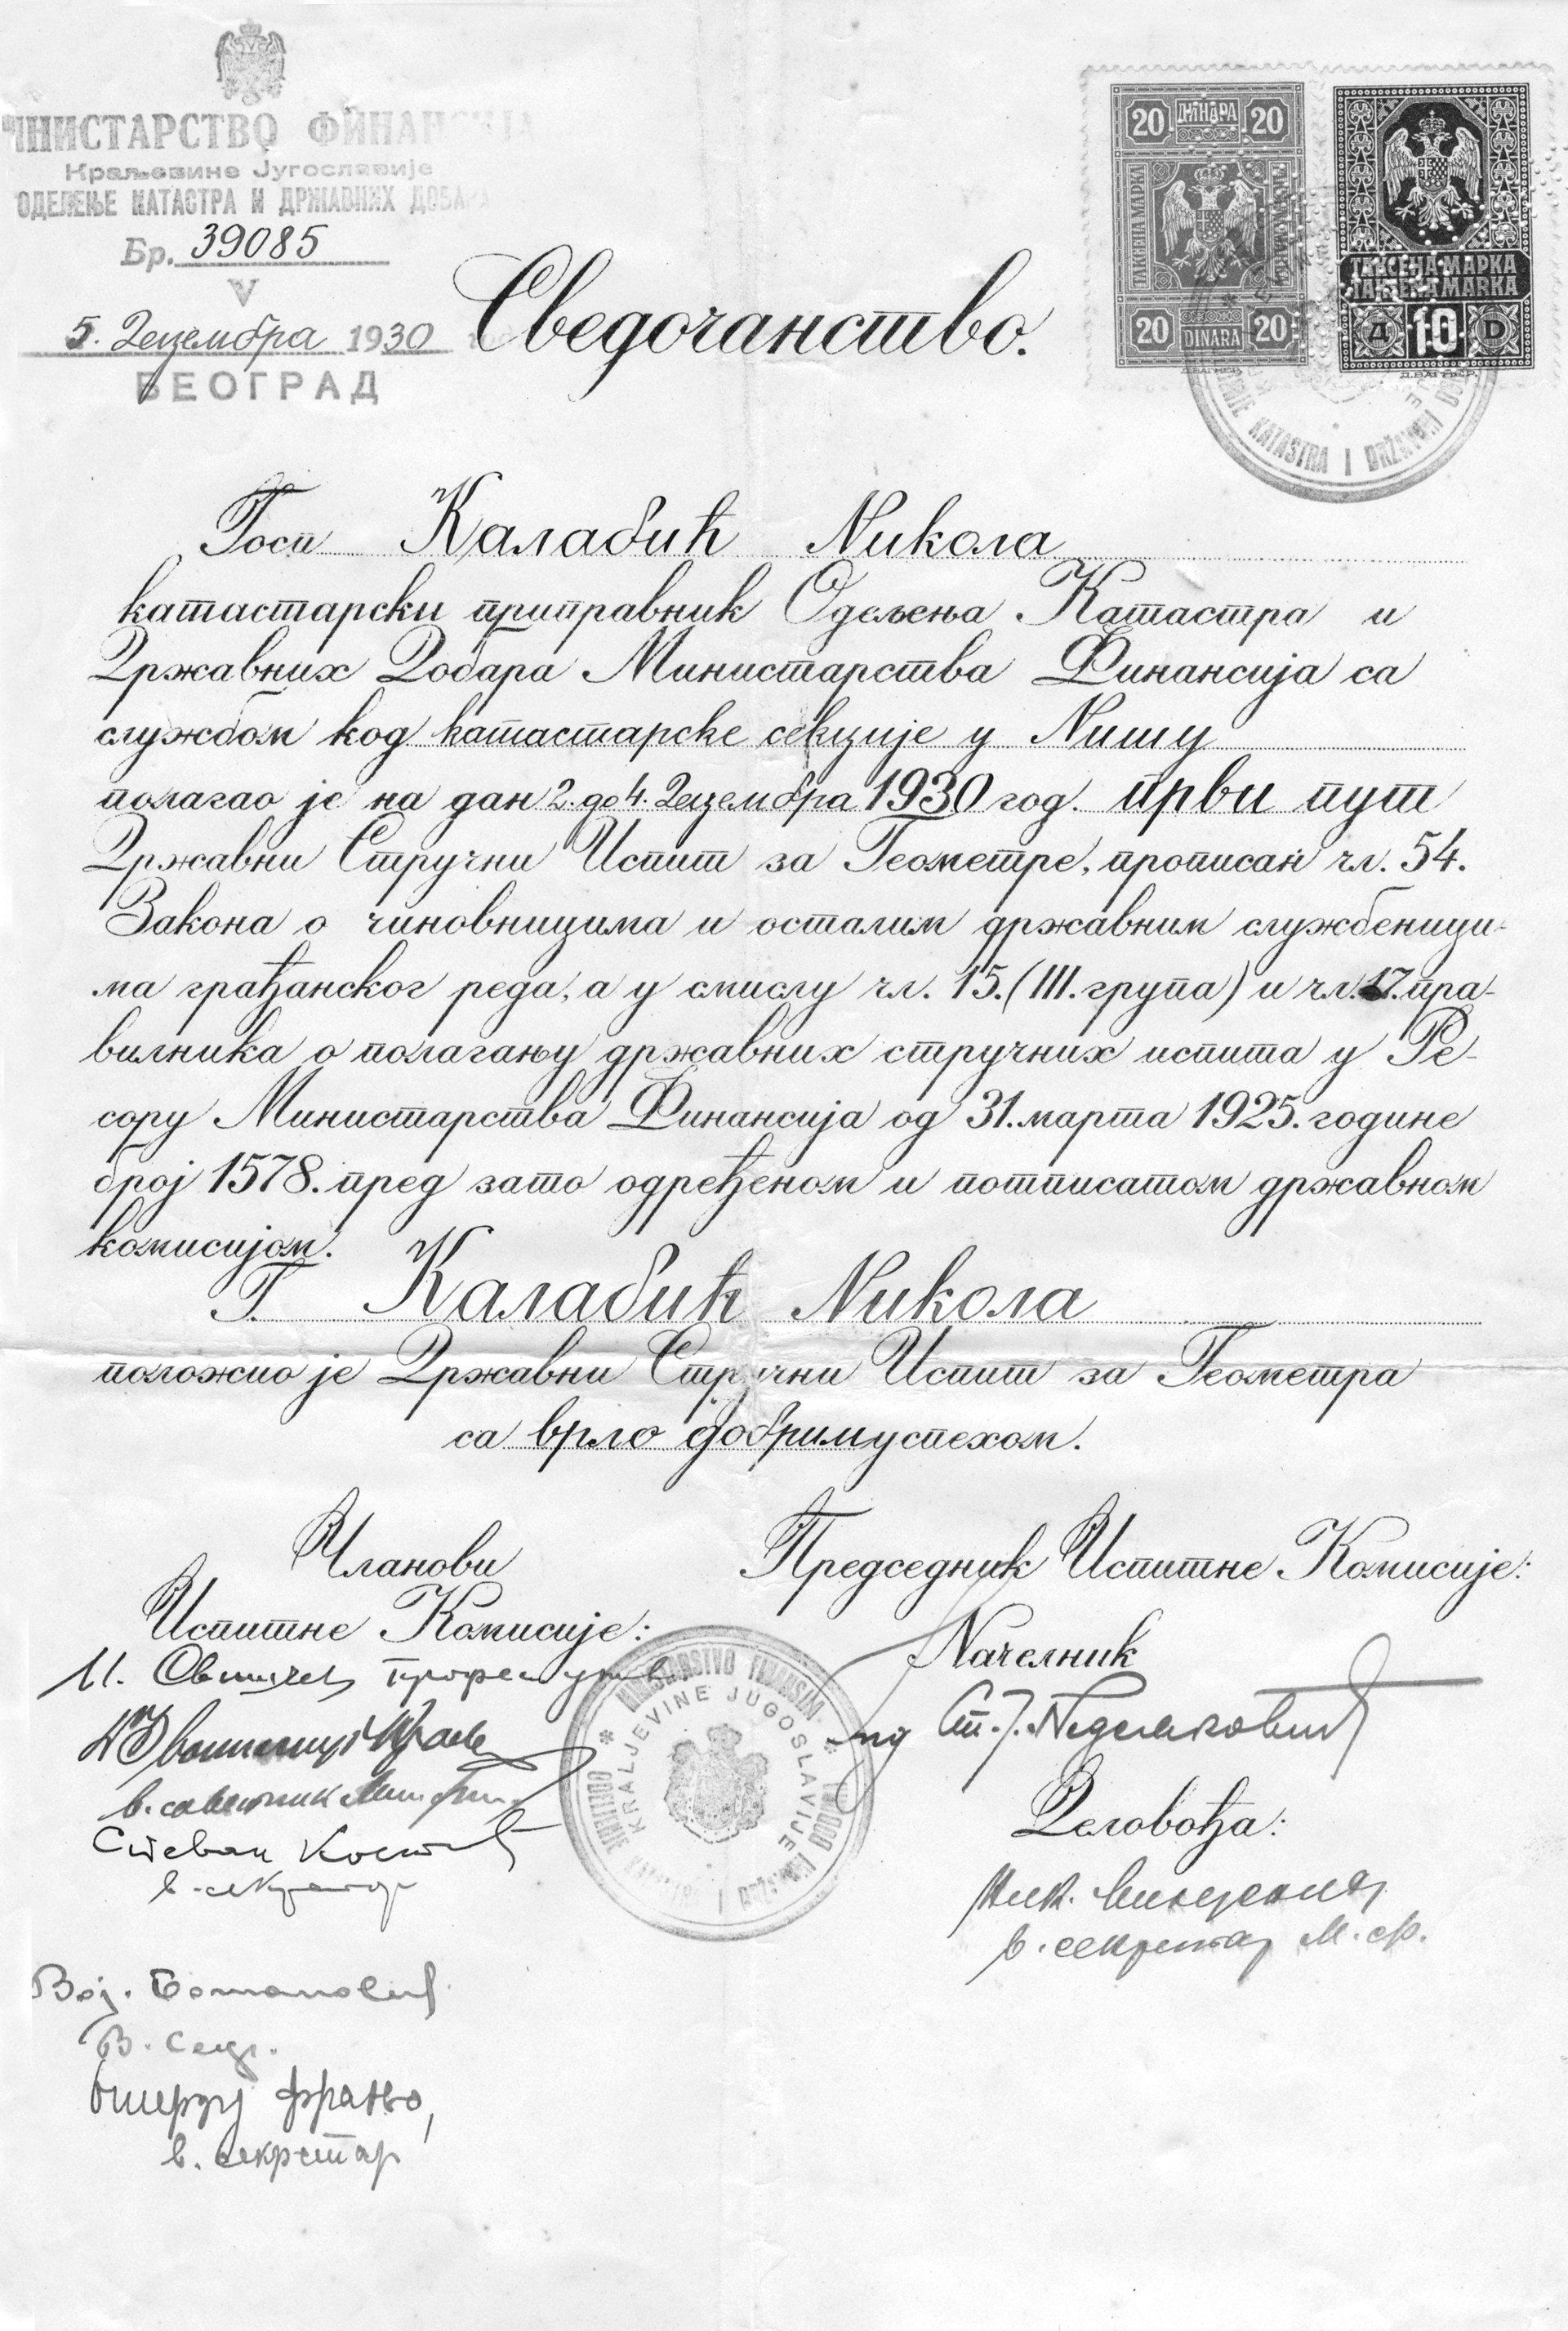 МИНИСТАРСТВО ФИНАНСИЈА
Краљевине Југославије
ОДЕЛЕЊЕ КАТАСТРА И ДРЖАВНИХ ДОБАРА
Бр. 39085
V
5. Децембра 1930
БЕОГРАД
20 ДИНАРА 20
ТАКСЕНА МАРКА
20 DINARA 20
ТАКСЕНА МАРКА
TAKSENA MARKA
Д 10 D
KATASTRA I DRŽAVNIH
Сведочанство.
Госп Калабић Никола
катастарски приправник Одељења Катастра и
Државних Добара Министарства Финансија са
службом код катастарске секције у Нишу
полагао је на дан 2. до 4. Децембра 1930 год. први пут
Државни Стручни Испит за Геометре, прописан чл. 54.
Закона о чиновницима и осталим државним службеници-
ма грађанског реда, а у смислу чл. 15. (III. група) и чл. 17. пра-
вилника о полагању државних стручних испита у Ре-
сору Министарства Финансија од 31. марта 1925. године
број 1578. пред зато одређеном и потписатом државном
комисијом.
Г. Калабић Никола
положио је Државни Стручни Испит за Геометра
са врло добрим успехом.
Чланови
Испитне Комисије:
Председник Испитне Комисије:
Начелник
Ст. Ј. Недељковић
Деловођа:
в. секретар М. Ф.
MINISTARSTVO FINANSIJA
KRALJEVINE JUGOSLAVIJE
в. саветник
Стеван
в. секретар
Вој.
В. Секр.
Фрањо,
в. секретар